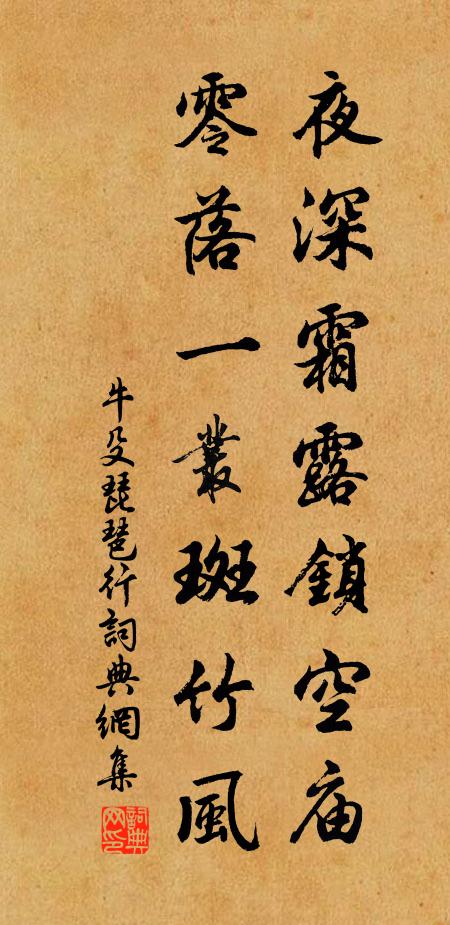 夜深霜露鎖空庙
零落一叢斑竹風
牛殳琵琶行詞典網集
詞典网印